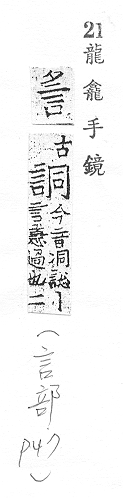 21 龍龕手鏡
古
詷
今音洞丨
言急過也二
(言部 P47)